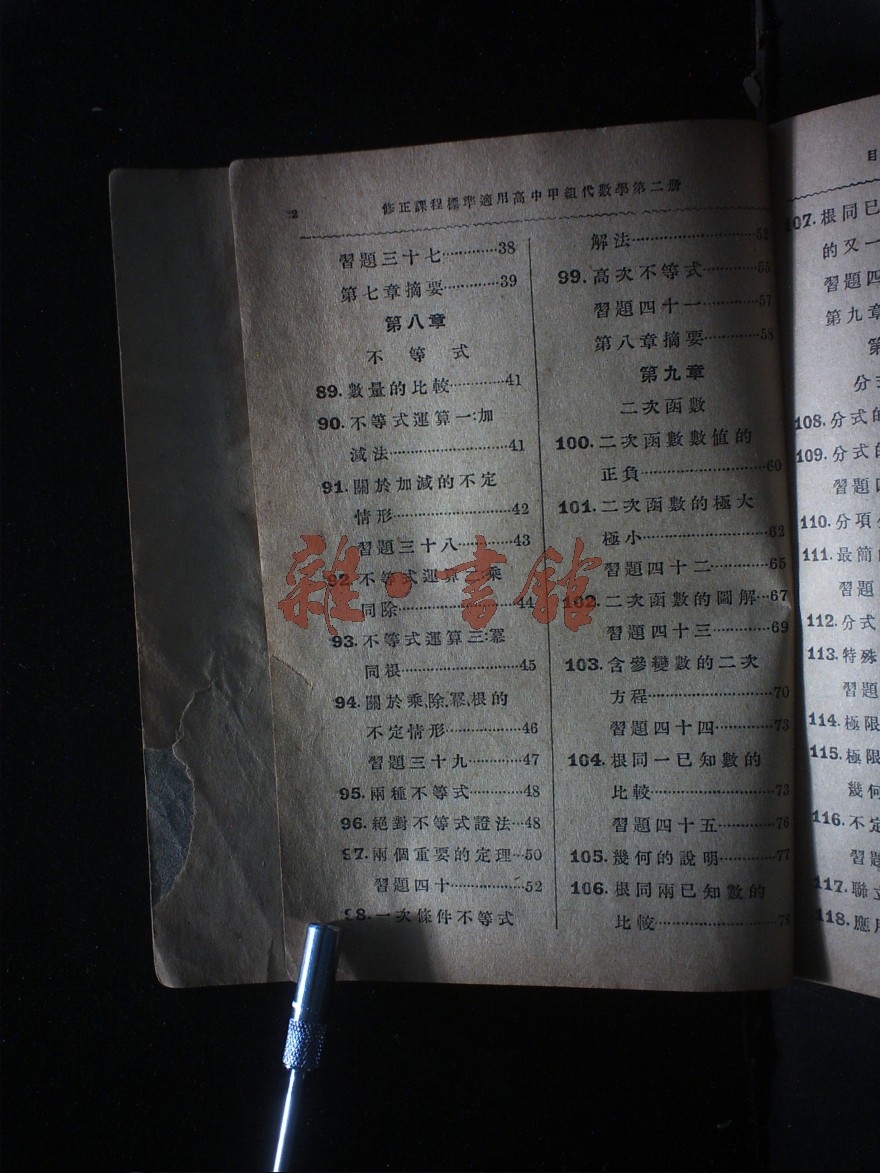 2 修正課程標準適用高中甲組代數學第二册
習題三十七…………38
第七章摘要…………39
第八章
不等式
89.數量的比較…………41
90.不等式運算一:加
減法…………41
91.關於加減的不定
情形…………42
習題三十八…………43
92.不等式運算二:乘
同除…………44
93.不等式運算三:冪
同根…………45
94.關於乘,除,冪,根的
不定情形…………46
習題三十九…………47
95.兩種不等式…………48
96.絕對不等式證法…48
97.兩個重要的定理…50
習題四十…………52
98.一次條件不等式
解法…………52
99.高次不等式…………55
習題四十一…………57
第八章摘要…………58
第九章
二次函數
100.二次函數數值的
正負…………60
101.二次函數的極大
極小…………62
習題四十二…………65
102.二次函數的圖解…67
習題四十三…………69
103.含參變數的二次
方程…………70
習題四十四…………73
104.根同一已知數的
比較…………73
習題四十五…………76
105.幾何的說明…………77
106.根同兩已知數的
比較…………78
目
107.根同已
的又一
習題四
第九章
第
分式
108.分式的
109.分式的
習題四
110.分項分
111.最簡的
習題
112.分式
113.特殊
習題
114.極限
115.極限
幾何
116.不定
習題
117.聯立
118.應用
雜·書館